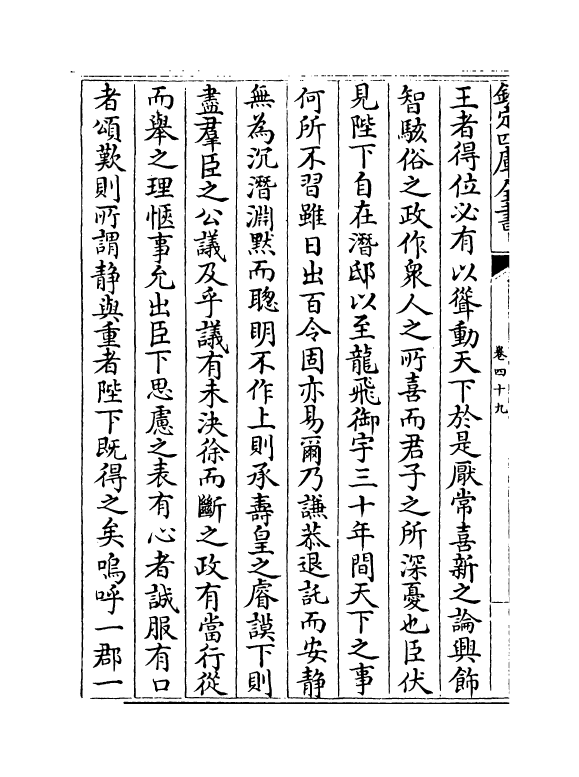 欽定四庫全書
卷四十九
王者得位必有以聳動天下於是厭常喜新之論興飾
智駭俗之政作衆人之所喜而君子之所深憂也臣伏
見陛下自在潛邸以至龍飛御宇三十年間天下之事
何所不習雖日出百令固亦易爾乃謙恭退託而安静
無為沉潛淵黙而聰明不作上則承壽皇之睿謨下則
盡羣臣之公議及乎議有未決徐而斷之政有當行從
而舉之理愜事允出臣下思慮之表有心者誠服有口
者頌歎則所謂静與重者陛下既得之矣嗚呼一郡一